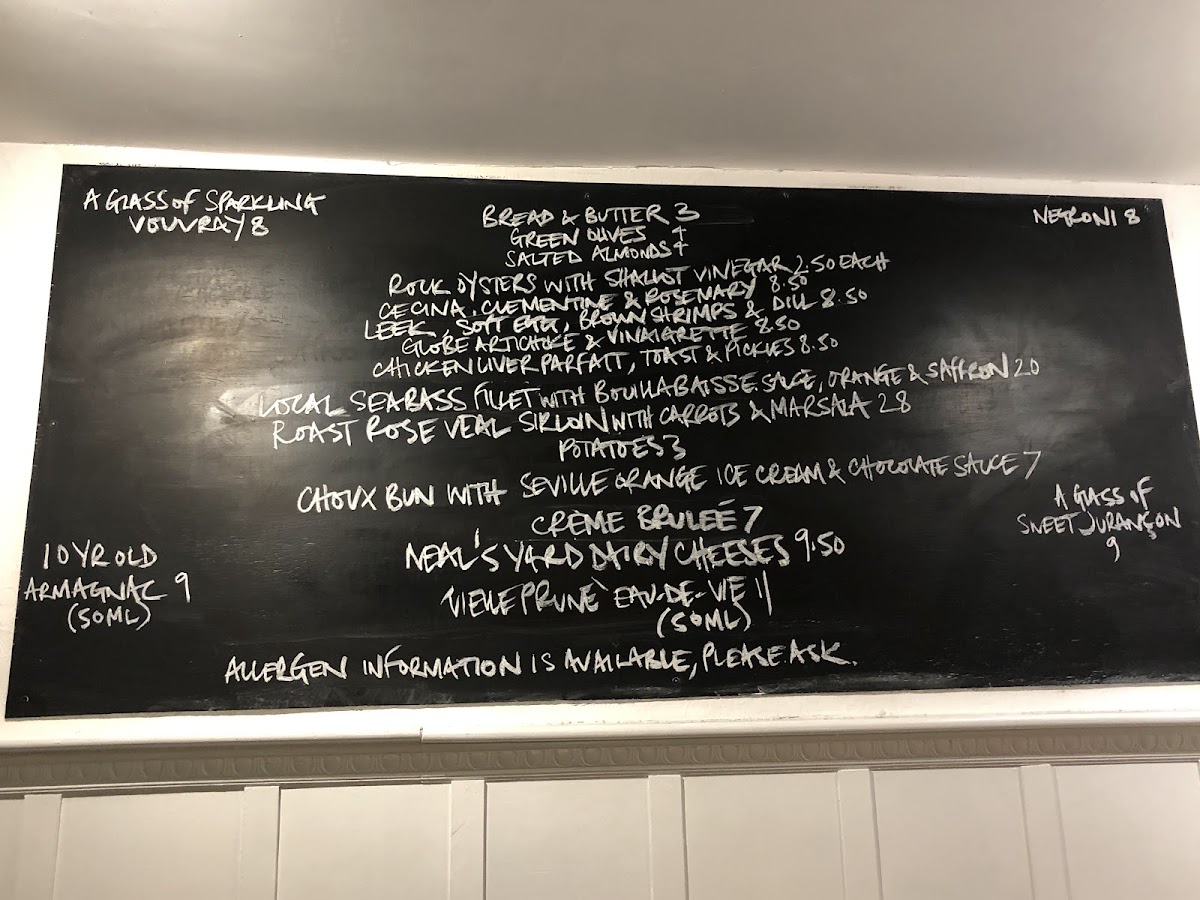 A GLASS OF SPARKLING
VOUVRAY 8
NEGRONI 8
BREAD & BUTTER 3
GREEN OLIVES 4
SALTED ALMONDS 4
ROCK OYSTERS WITH SHALLOT VINEGAR 2.50 EACH
CECINA, CLEMENTINE & ROSEMARY 8.50
LEEK, SOFT EGG, BROWN SHRIMPS & DILL 8.50
GLOBE ARTICHOKE & VINAIGRETTE 8.50
CHICKEN LIVER PARFAIT, TOAST & PICKLES 8.50
LOCAL SEABASS FILLET WITH BOUILLABAISSE SAUCE, ORANGE & SAFFRON 20
ROAST ROSE VEAL SIRLOIN WITH CARROTS & MARSALA 28
POTATOES 3
CHOUX BUN WITH SEVILLE ORANGE ICE CREAM & CHOCOLATE SAUCE 7
CRÈME BRULEÉ 7
NEAL'S YARD DAIRY CHEESES 9.50
VIELLE PRUNE EAU-DE-VIE 11
(50ML)
10 YR OLD
ARMAGNAC 9
(50ML)
A GLASS OF
SWEET JURANÇON
9
ALLERGEN INFORMATION IS AVAILABLE, PLEASE ASK.